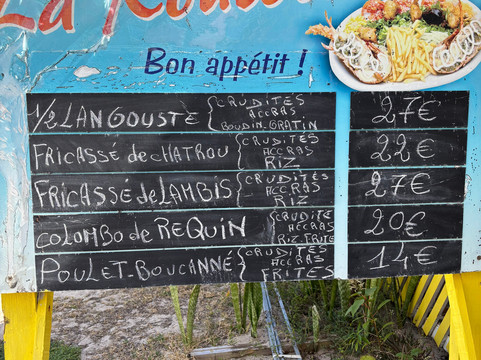 La
Bon appétit !
1/2 LANGOUSTE { CRUDITÉS
ACCRAS
BOUDIN. GRATIN
27€
FRICASSÉ de CHATROU { CRUDITÉS
ACCRAS
RIZ
22€
FRICASSÉ de LAMBIS { CRUDITÉS
ACCRAS
RIZ
27€
COLOMBO de REQUIN { CRUDITÉ
ACCRAS
RIZ FRITE
20€
POULET-BOUCANNÉ { CRUDITÉS
ACCRAS
FRITES
14€